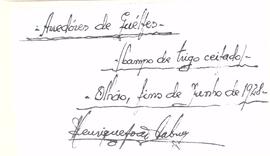 - Arredores de Quelfes -
- (Campo de trigo ceifado) -
- Olhão, fins de Junho de 1928 -
Henrique José